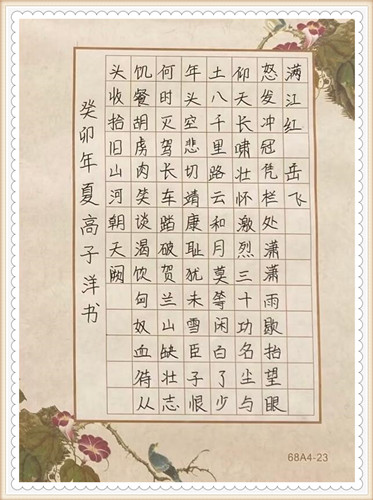 满江红 岳飞
怒发冲冠凭栏处潇潇雨歇抬望眼
仰天长啸壮怀激烈三十功名尘与
土八千里路云和月莫等闲白了少
年头空悲切靖康耻犹未雪臣子恨
何时灭驾长车踏破贺兰山缺壮志
饥餐胡虏肉笑谈渴饮匈奴血待从
头收拾旧山河朝天阙
癸卯年夏高子洋书
68A4-23